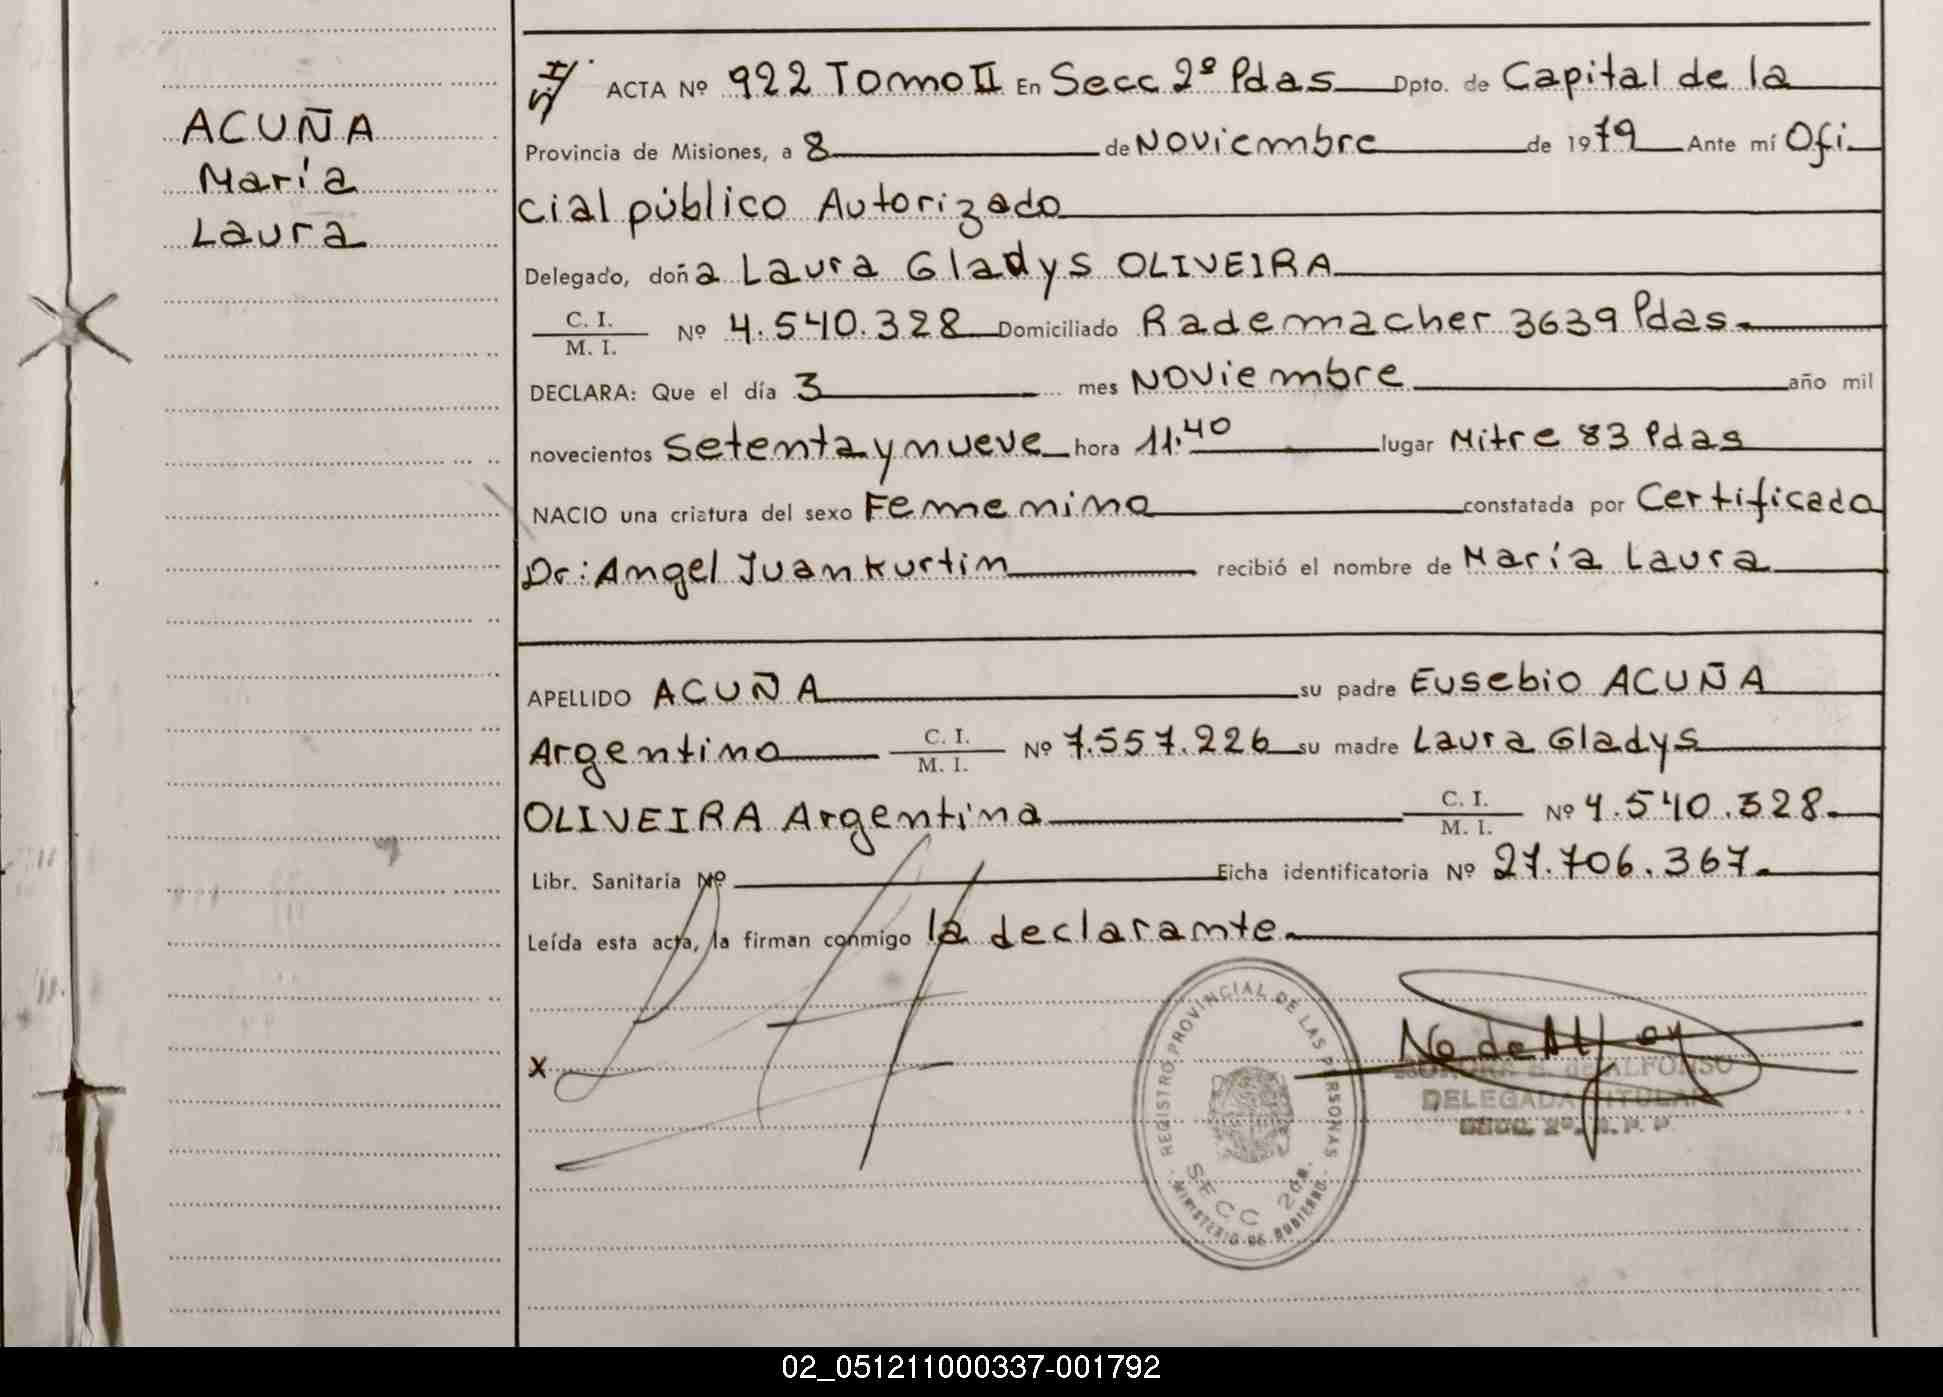 ACUÑA
María
Laura
ACTA Nº 922 Tomo II En Secc 2º Pdas Dpto. de Capital de la
Provincia de Misiones, a 8 de Noviembre de 1979 Ante mí Ofi
cial público Autorizado
Delegado, doña Laura Gladys OLIVEIRA
C. I.
M. I. Nº 4.540.328 Domiciliado Rademacher 3639 Pdas.
DECLARA: Que el día 3 mes Noviembre año mil
novecientos setenta y nueve hora 11.40 lugar Mitre 83 Pdas
NACIO una criatura del sexo Femenino constatada por Certificado
Dr: Angel Juan Kurtin recibió el nombre de María Laura
APELLIDO ACUÑA su padre Eusebio ACUÑA
Argentino C. I. M. I. Nº 7.557.226 su madre Laura Gladys
OLIVEIRA Argentina C. I. M. I. Nº 4.540.328.
Libr. Sanitaria Nº Ficha identificatoria Nº 27.706.367.
Leída esta acta, la firman conmigo la declarante.
X
REGISTRO PROVINCIAL DE LAS PERSONAS
SECC 2da.
MINISTERIO DE GOBIERNO
de ALFONSO
DELEGADA TITULAR
02_051211000337-001792